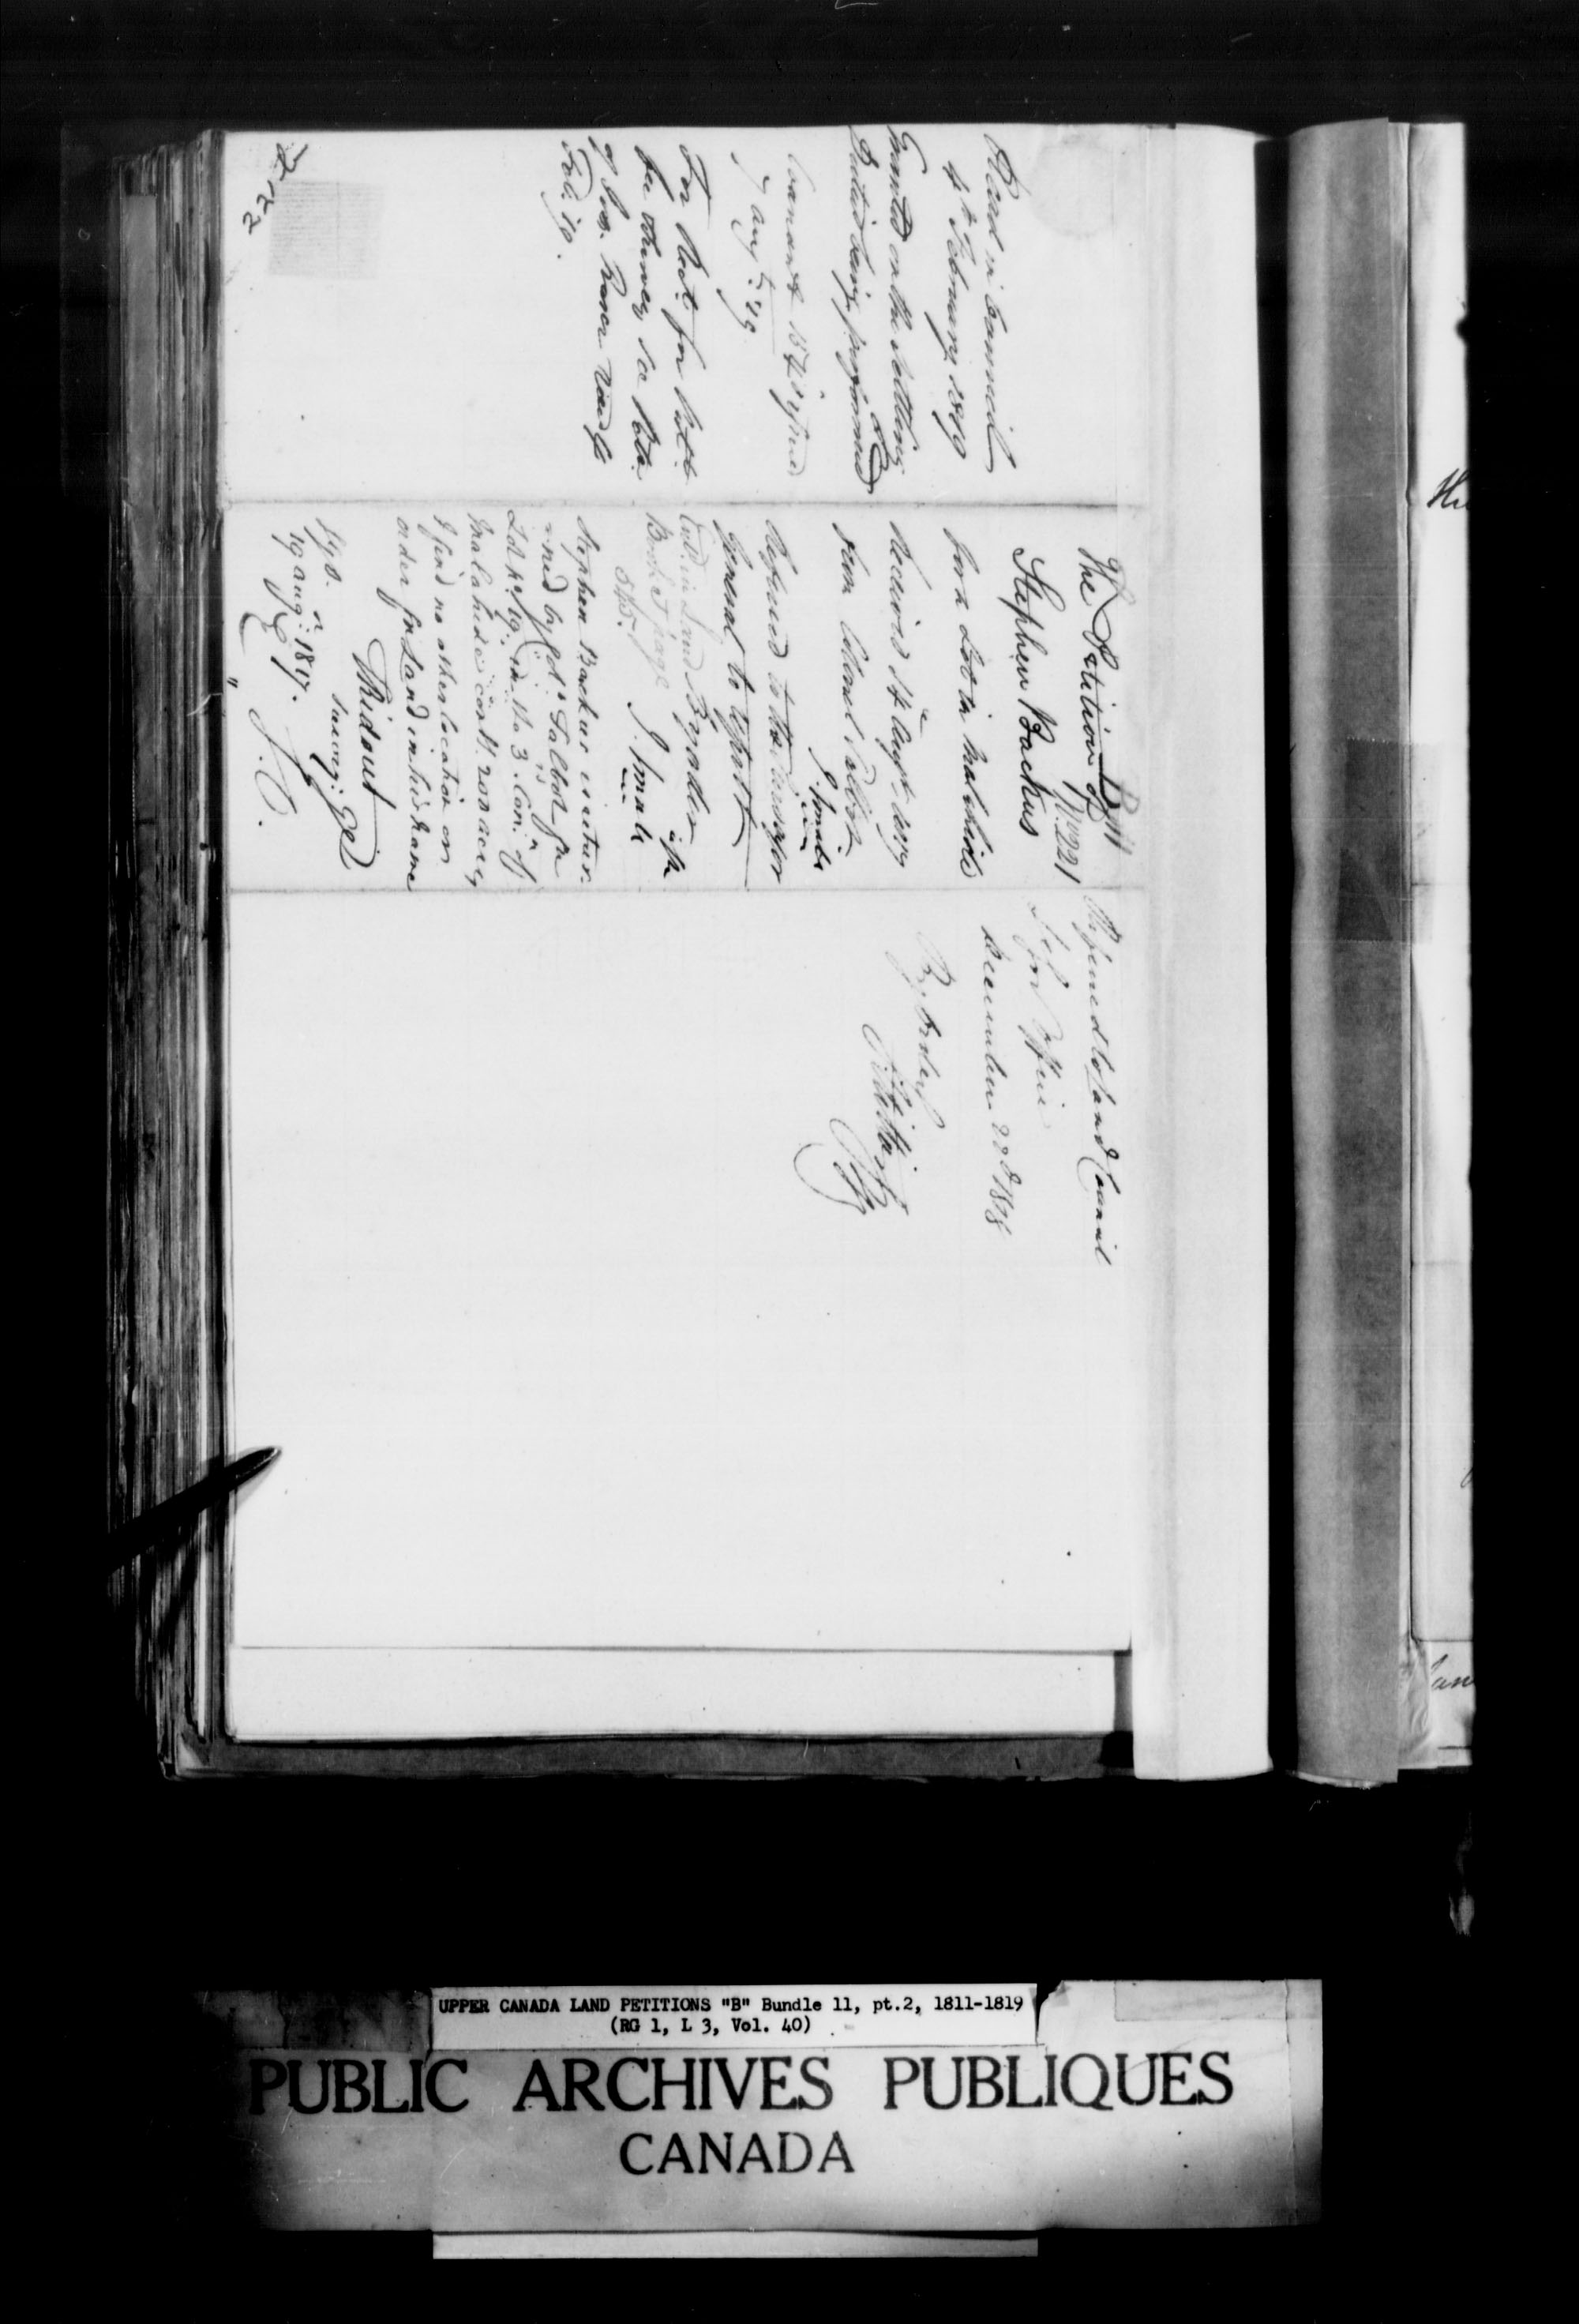 Read in Council
4th February 1819
Granted on the Settling
Duties being performed
7 Augt '19
For Rect. for
Feby '19.
221
B 11
No. 221
The Petition of
Stephen Backus
for a Lot in Malahide
Received 14 Augt 1817
from Colonel Talbot
J. Small
Referred to the Surveyor
General to report
Ent'd in Land Board
Book I page
545.
J. Small
Stephen Backus is retur-
-ned by Col. Talbot for
Lot No. 19. in the 3. Con: of
Malahide cont'g. 200 acres
I find no other location or
order for Land in his name
T Ridout
Surv: Gel
S.G.O.
19 Aug: 1817.
Referred to Land Council
Lt Govr Office
December 22d 1818
By Order
Hu
UPPER CANADA LAND PETITIONS "B" Bundle 11, pt.2, 1811-1819
(RG 1, L 3, Vol. 40)
PUBLIC ARCHIVES PUBLIQUES
CANADA